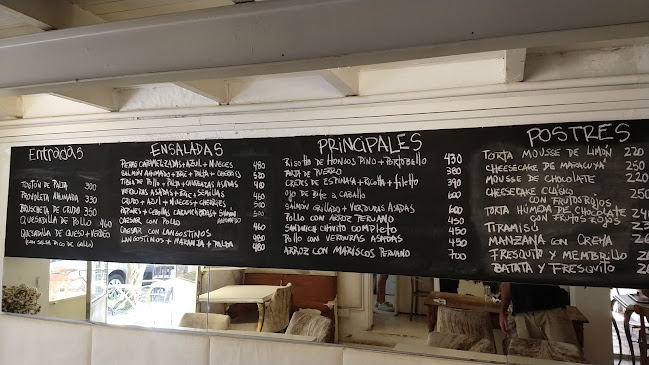 Entradas
TOSTÓN DE PALTA 300
PROVOLETA AHUMADA 330
BRUSCHETA DE CRUDO 350
QUESADILLA DE POLLO 460
QUESADILLA DE QUESO + VERDEO
(CON SALSA PICO DE GALLO)
ENSALADAS
PERAS CARAMELIZADAS + AZUL + NUECES 480
SALMÓN AHUMADO + + PALTA + CHERRIES 520
TIBIA DE POLLO + PALTA + ASADAS
VERDURAS ASADAS + + SEMILLAS
CRUDO + AZUL + NUECES + CHERRIES
CAESAR CON POLLO 460
CAESAR CON LANGOSTINOS
LANGOSTINOS + NARANJA + PALTA 480
PRINCIPALES
RISOTTO DE HONGOS PINO + PORTOBELLO 430
TARTA DE PUERRO 380
CREPES DE ESPINACA + RICOTTA + FILETTO 390
OJO DE BIFE A CABALLO 600
SALMÓN GRILLADO + VERDURAS ASADAS 600
POLLO CON ARROZ PERUANO 450
SANDWICH CHIVITO COMPLETO 450
POLLO CON VERDURAS ASADAS 450
ARROZ CON MARISCOS PERUANO 700
POSTRES
TORTA MOUSSE DE LIMÓN 220
CHEESECAKE DE MARACUYÁ
MOUSSE DE CHOCOLATE
CHEESECAKE CLÁSICO
CON FRUTOS ROJOS
TORTA HÚMEDA DE CHOCOLATE 240
CON FRUTOS ROJOS
TIRAMISÚ
MANZANA CON CREMA
FRESQUITO Y MEMBRILLO
BATATA Y FRESQUITO